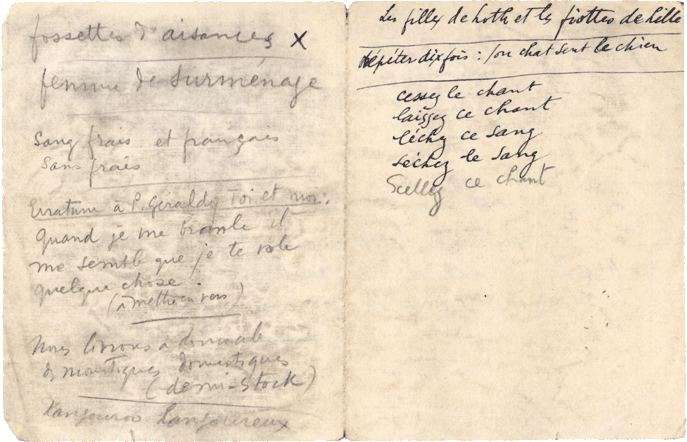 fossettes d'aisances x
femme de surménage
Sang frais et français
Sans frais
Erratum à P. Géraldy Toi et moi :
Quand je me branle il
me semble que je te vole
quelque chose.
(à mettre en vers)
Nous livrons à domicile
des moustiques domestiques
(demi-stock)
Kangourous langoureux
Les filles de Loth et les fiottes de Lille
Répéter dix fois : /on chat sent le chien
cessez le chant
laissez ce chant
léchez ce sang
séchez le sang
Scellez ce chant